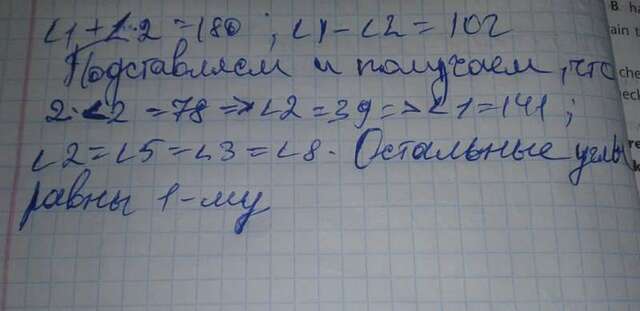 ∠1+∠2=180; ∠1-∠2=102
Подставляем и получаем, что
2·∠2=78=>∠2=39=>∠1=141;
∠2=∠5=∠3=∠8. Остальные углы
равны 1-му